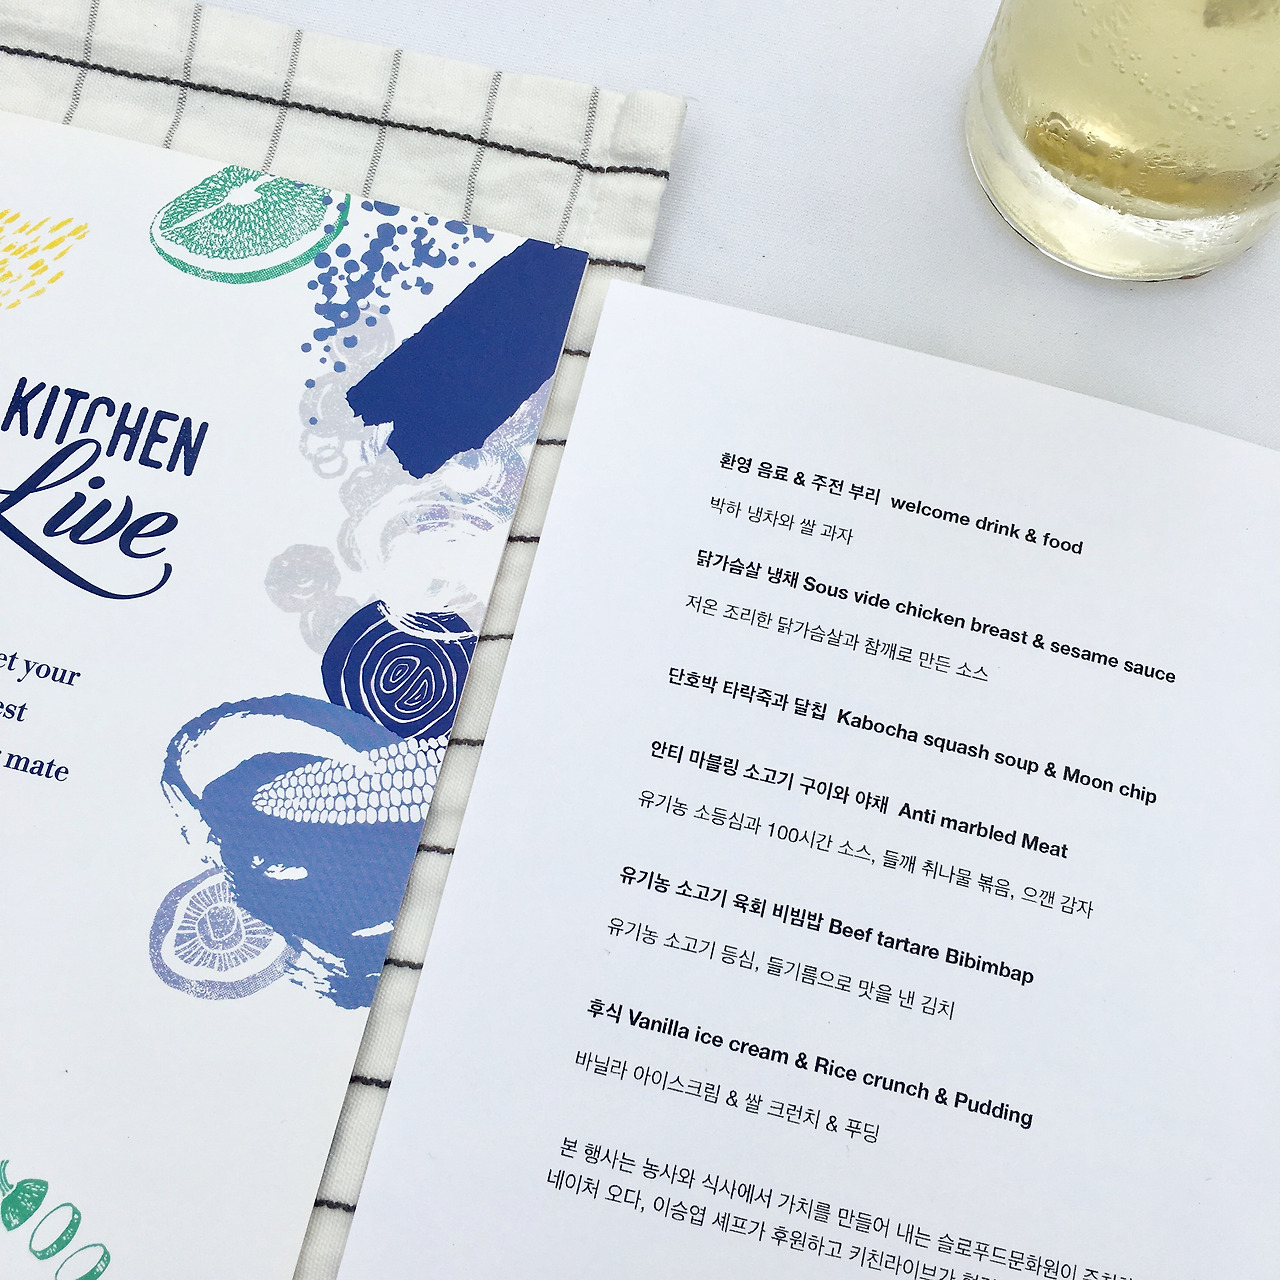 KITCHEN
Live
et your
est
mate
환영 음료 & 주전 부리 welcome drink & food
박하 냉차와 쌀 과자
닭가슴살 냉채 Sous vide chicken breast & sesame sauce
저온 조리한 닭가슴살과 참깨로 만든 소스
단호박 타락죽과 달칩 Kabocha squash soup & Moon chip
안티 마블링 소고기 구이와 야채 Anti marbled Meat
유기농 소등심과 100시간 소스, 들깨 취나물 볶음, 으깬 감자
유기농 소고기 육회 비빔밥 Beef tartare Bibimbap
유기농 소고기 등심, 들기름으로 맛을 낸 김치
후식 Vanilla ice cream & Rice crunch & Pudding
바닐라 아이스크림 & 쌀 크런치 & 푸딩
본 행사는 농사와 식사에서 가치를 만들어 내는 슬로푸드문화원이
네이처 오다, 이승엽 셰프가 후원하고 키친라이브가